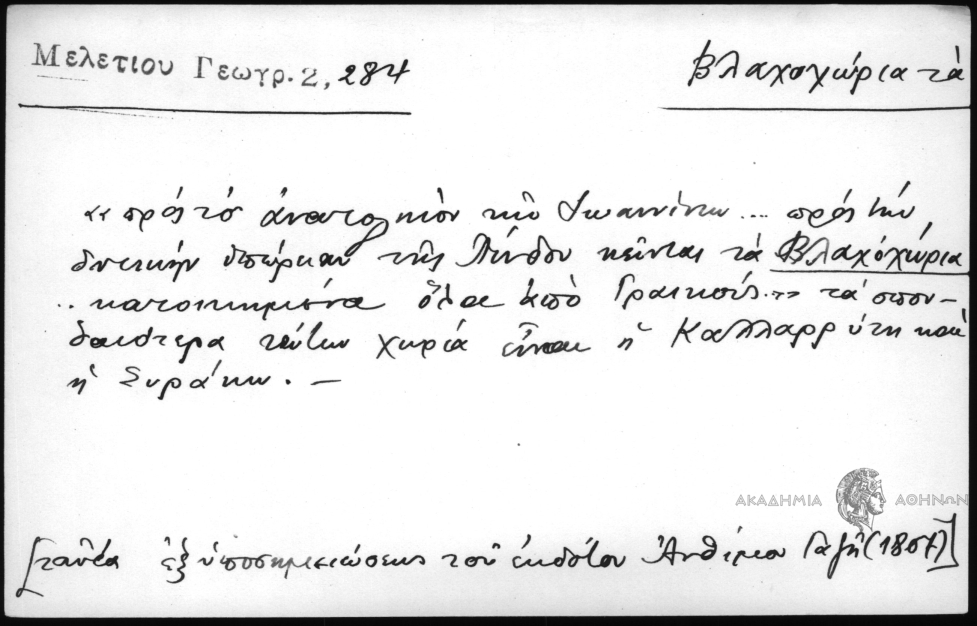 Μελετιου Γεωγρ. 2, 284
Βλαχοχώρια τὰ
«πρὸς τὸ ἀνατολικὸν τῶν Ἰωαννίνων ... πρὸς τὴν
δυτικὴν ὑπώρειαν τῆς Πίνδου κεῖνται τὰ Βλαχόχώρια
.. κατοικημένα ὅλα ἀπὸ Γραικούς..» τὰ σπου-
δαιότερα τούτων χωρία εἶναι ἡ Καλλαρρύτη καὶ
ἡ Συράκω. —
ΑΚΑΔΗΜΙΑ ΑΘΗΝΩΝ
[ταῦτα ἐξ ὑποσημειώσεως τοῦ ἐκδότου Ἀνθίμου Γαζῆ (1807)]